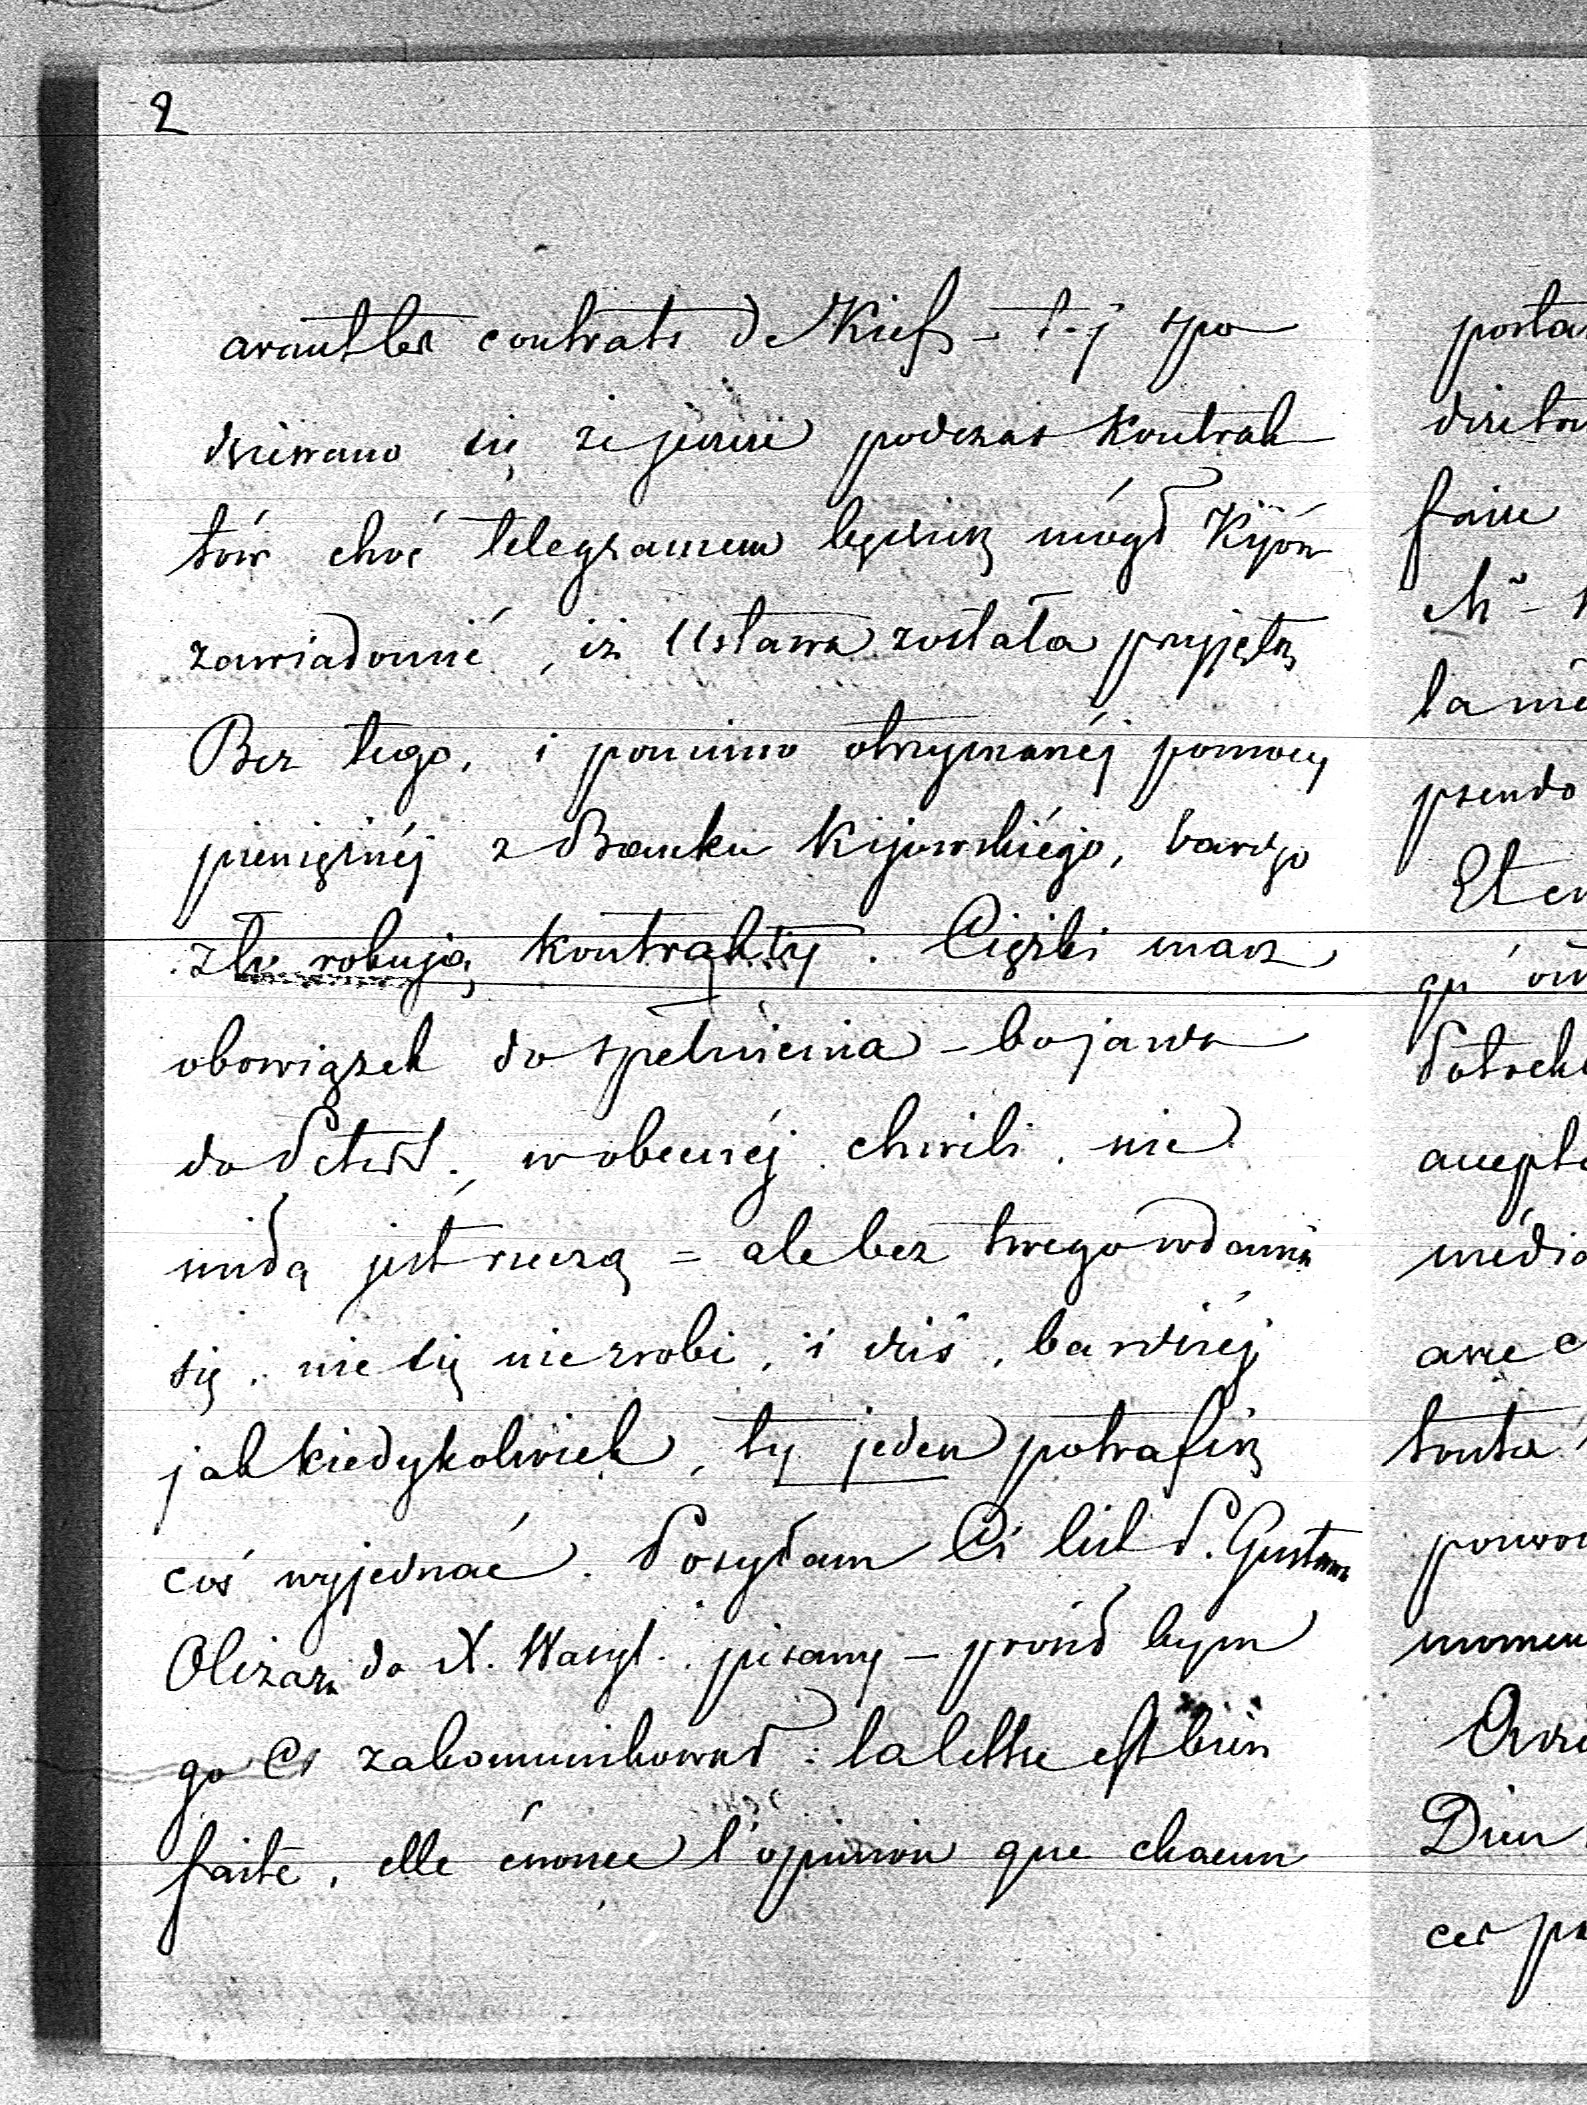 2
avant les contrats de Kief – t. j spo
dziewano się że jeszcze podczas Kontrak
tów choć telegramem będziesz mógł Kijów
zawiadomić, iż Ustawa została przyjętą
Bez tego, i pomimo otrzymanéj pomocy
pieniężnéj z Banku Kijowskiégo, bardzo
źle rokują kontrakty. Ciężki masz
obowiązek do spełnienia – bo jazda
do Petersb. w obecnéj chwili, nie
miłą jest rzeczą = ale bez twego wdania
się, nic się nie zrobi, i dziś, bardziéj
jak kiedykolwiek, ty jeden potrafisz
coś wyjednać. Posyłam Ci list P. Gustawa
Olizara do X. Wasyl. pisany – prosił bym
go Ci zakomunikował: la lettre est bien
faite, elle énonce l'opinion que chacun
posta
faire
la
pseudo
Et en
qu'
accepte
avec
touta
momen
Dieu
ces